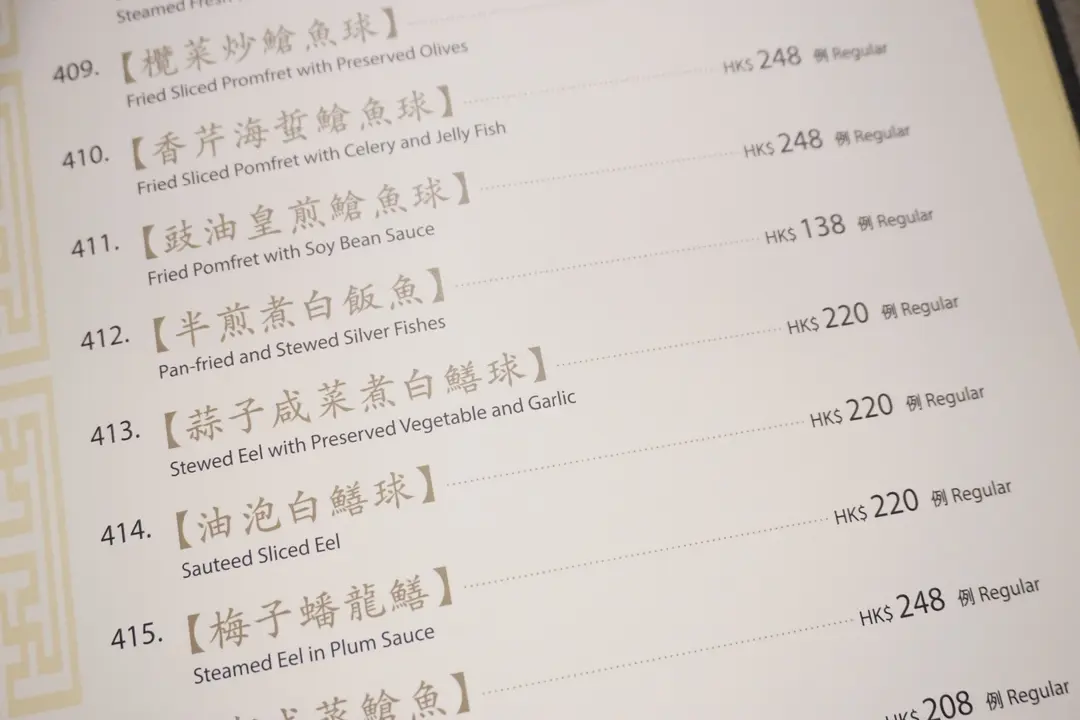 Steamed
409. 【欖菜炒䱽魚球】
Fried Sliced Promfret with Preserved Olives
410. 【香芹海蜇䱽魚球】 HK$ 248 例 Regular
Fried Sliced Pomfret with Celery and Jelly Fish
411. 【豉油皇煎䱽魚球】 HK$ 248 例 Regular
Fried Pomfret with Soy Bean Sauce
412. 【半煎煮白飯魚】 HK$ 138 例 Regular
Pan-fried and Stewed Silver Fishes
413. 【蒜子咸菜煮白鱔球】 HK$ 220 例 Regular
Stewed Eel with Preserved Vegetable and Garlic
414. 【油泡白鱔球】 HK$ 220 例 Regular
Sauteed Sliced Eel
415. 【梅子蟠龍鱔】 HK$ 220 例 Regular
Steamed Eel in Plum Sauce
菜䱽魚】 HK$ 248 例 Regular
HK$ 208 例 Regular